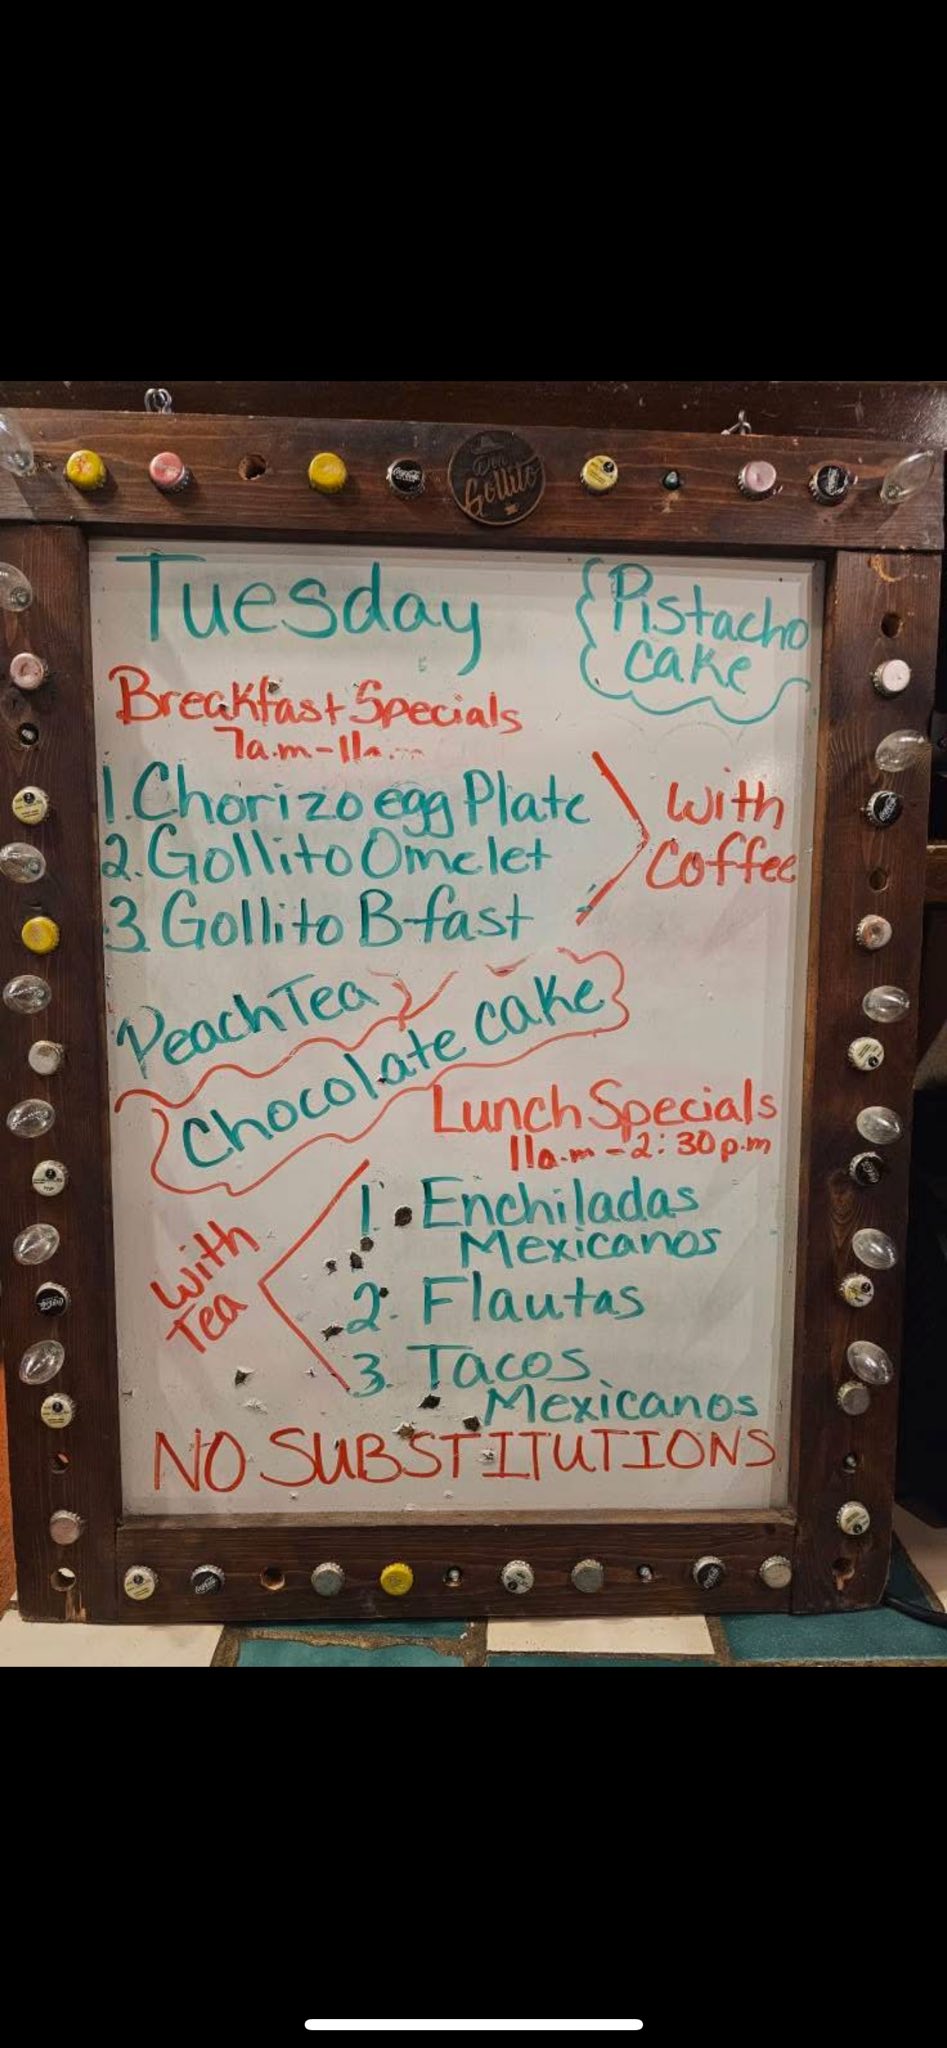 Don
Gollito
Tuesday
Pistacho
cake
Breakfast Specials
7a.m-11a.m
1. Chorizo egg Plate
2. Gollito Omelet
3. Gollito B-fast
with
Coffee
Peach Tea
Chocolate cake
Lunch Specials
11a.m - 2:30p.m
with
Tea
1. Enchiladas
Mexicanos
2. Flautas
3. Tacos
Mexicanos
NO SUBSTITUTIONS